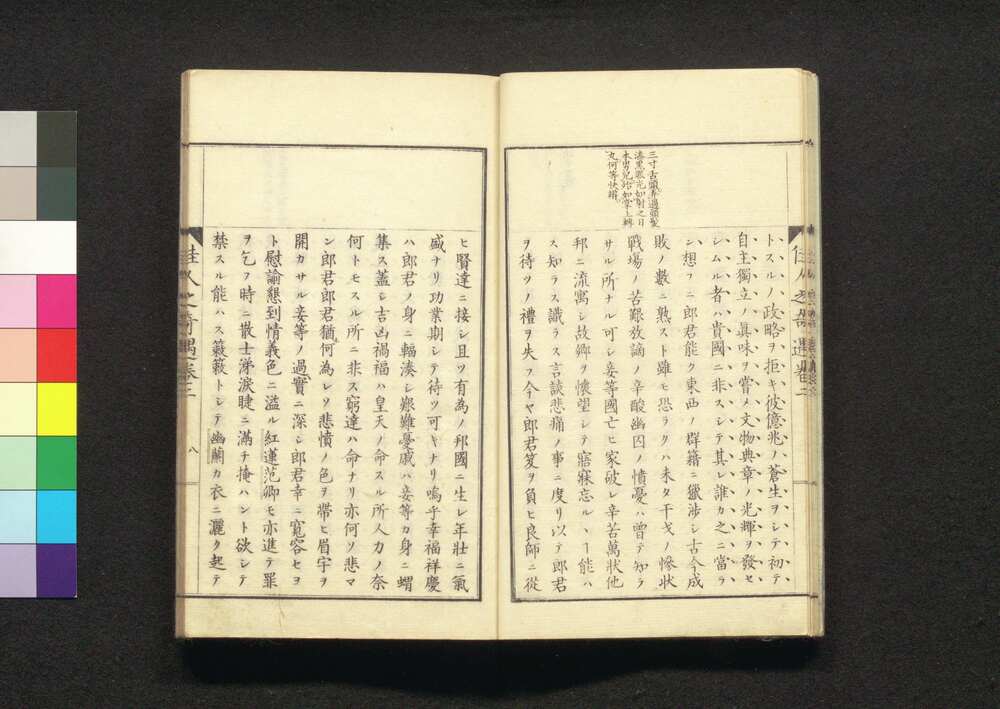 佳人之奇遇卷二
トスルノ政略ヲ拒キ彼億兆ノ蒼生ヲシテ初テ
自主獨立ノ眞味ヲ嘗メ文物典章ノ光輝ヲ發セ
シムル者ハ貴國ニ非スシテ其レ誰カ之ニ當ラ
ン想フニ郎君能ク東西ノ群籍ニ獵涉シ古今成
敗ノ數ニ熟スト雖モ恐ラクハ未タ干戈ノ慘狀
戰場ノ苦艱放謫ノ辛酸幽囚ノ憤憂ハ曾テ知ラ
サル所ナル可シ妾等國亡ヒ家破レ辛苦萬狀他
邦ニ流寓シ故鄉ヲ懷望シテ寤寐忘ルヽヿ能ハ
ス知ラス識ラス言談悲痛ノ事ニ度リ以テ郎君
ヲ待ツノ禮ヲ失フ今ヤ郎君笈ヲ負ヒ良師ニ從
三寸舌頭弄過頭髮
漆黑眼光如射之日
本男兒恰如掌上轉
丸何等快辯
ヒ賢達ニ接シ且ツ有為ノ邦國ニ生レ年壯ニ氣
盛ナリ功業期シテ待ツ可キナリ嗚乎幸福祥慶
ハ郎君ノ身ニ輻湊シ艱難憂戚ハ妾等カ身ニ蝟
集ス蓋シ吉凶禍福ハ皇天ノ命スル所人力ノ奈
何トモスル所ニ非ス窮達ハ命ナリ亦何ソ悲マ
ン郎君郎君猶何為レソ悲憤ノ色ヲ帶ヒ眉宇ヲ
開カサル妾等ノ過實ニ深シ郎君幸ニ寬容セヨ
ト慰諭懇到情義色ニ溢ル紅蓮范卿モ亦進テ罪
ヲ乞フ時ニ散士涕淚睫ニ滿チ掩ハント欲シテ
禁スル能ハス簌簌トシテ幽蘭カ衣ニ灑ク起テ
佳人之奇遇卷二
八